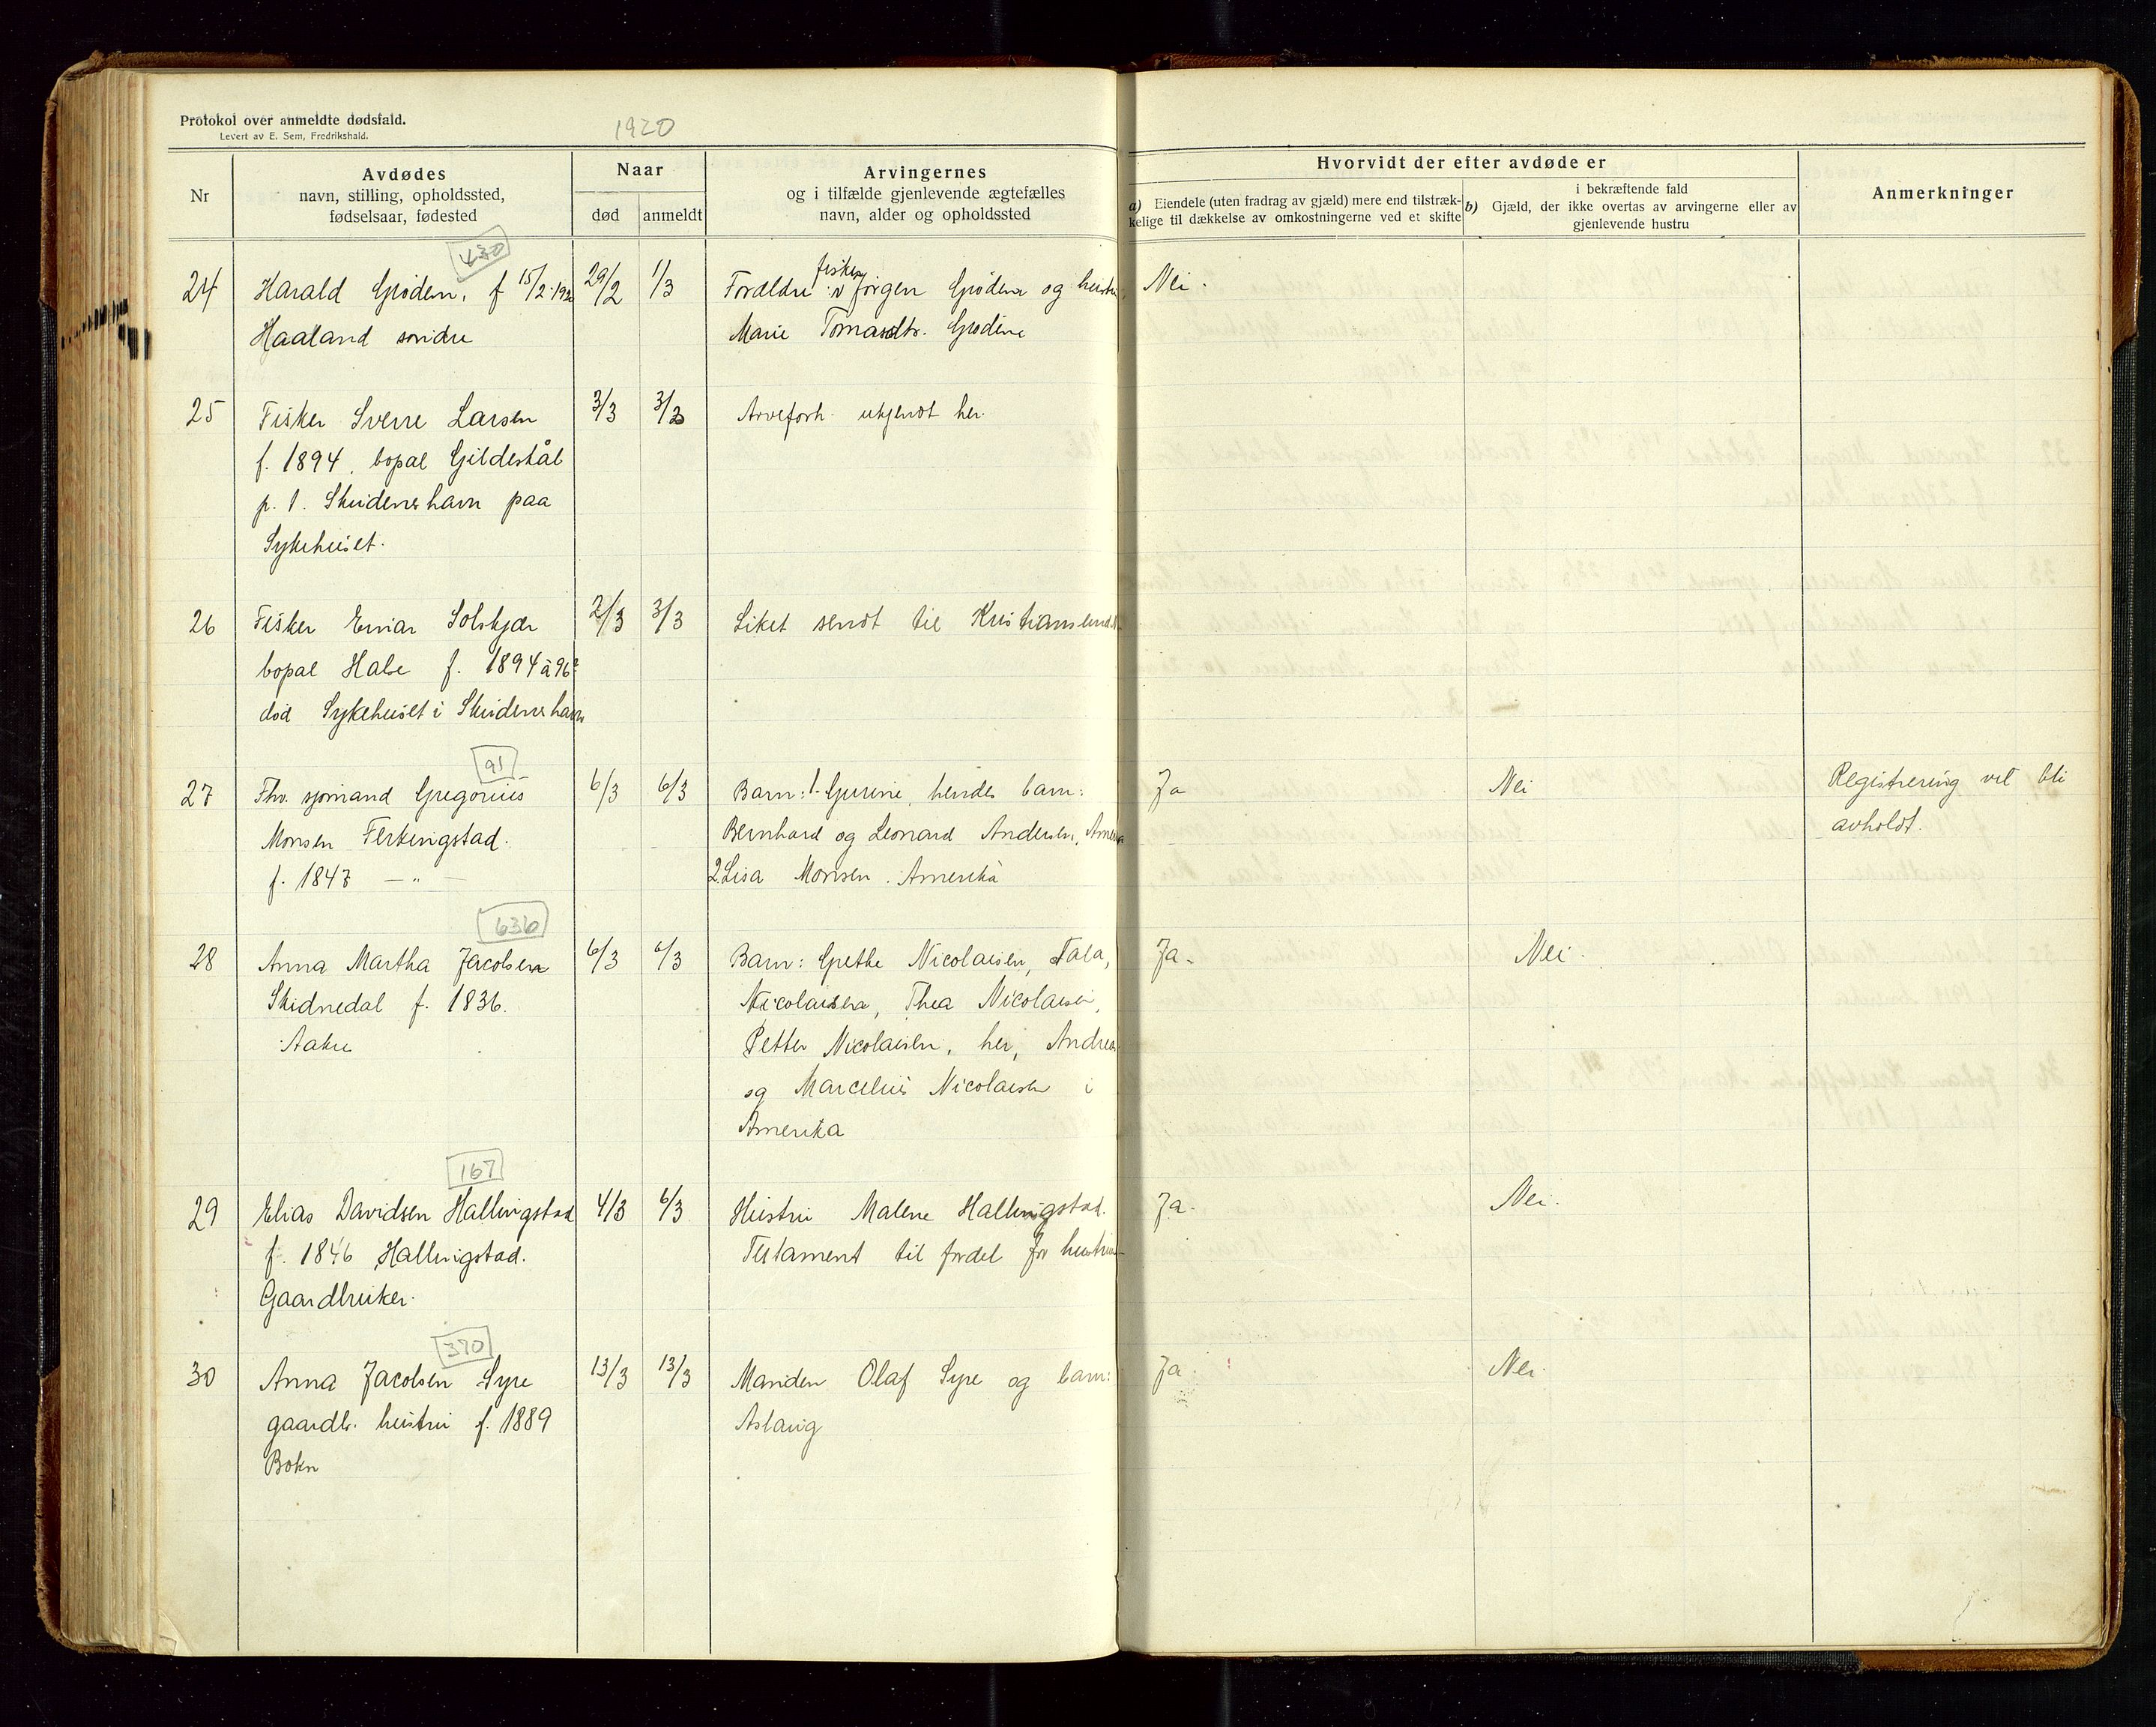 Protokol over anmeldte dødsfald.
Levert av E. Sem, Fredrikshald.
1920
Nr
Avdødes
navn, stilling, opholdssted,
fødselsaar, fødested
Naar
død
anmeldt
Arvingernes
og i tilfælde gjenlevende ægtefælles
navn, alder og opholdssted
Hvorvidt der efter avdøde er
a) Eiendele (uten fradrag av gjæld) mere end tilstræk-
kelige til dækkelse av omkostningerne ved et skifte
i bekræftende fald
b) Gjæld, der ikke overtas av arvingerne eller av
gjenlevende hustru
Anmerkninger
430
24 Harald Grødem, f 15/2 1920 29/2 1/3 Forældre: fisker Jørgen Grødem og hustru Nei.
Haaland søndre Marie Tomasdtr. Grødem
25 Fisker Sverre Larsen 3/3 3/3 Arveforh. ukjendt her.
f. 1894, bopæl Gildeskål
p. t. Skudeneshavn paa
Sykehuset.
26 Fisker Einar Solskjær 2/3 3/3 Liket sendt til Kristiansund.
bopæl Halse f. 1894 à 96?
død Sykehuset i Skudeneshavn
91
27 Fhv. sjømand Gregorius 6/3 6/3 Barn: 1. Gurine, hendes barn: Ja Nei Registrering vil bli
Monsen Ferkingstad. Bernhard og Leonard Andersen, Amerika avholdt.
f. 1847 — " — 2. Lisa Monsen. Amerika
636
28 Anna Martha Jacobsen 6/3 6/3 Barn: Grethe Nicolaisen, Tala, Ja. Nei.
Skidnedal f. 1836. Nicolaisen, Thea Nicolaisen,
Aakre Petter Nicolaisen, her, Andreas
og Marcelius Nicolaisen i
Amerika
167
29 Elias Davidsen Hallingstad 4/3 6/3 Hustru Malene Hallingstad. Ja. Nei.
f. 1846 Hallingstad. Testament til fordel for hustru
Gaardbruker.
370
30 Anna Jacobsen Syre 13/3 13/3 Manden Olaf Syre og barn: Ja. Nei.
gaardb. hustru f. 1889 Aslaug
Bokn